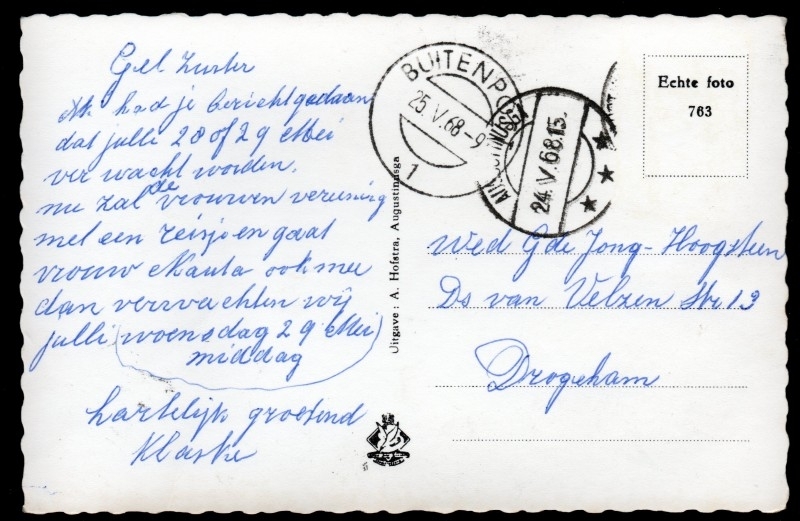 Gel Zuster
Ik had je bericht gedaan
dat julli 28 of 29 Mei
ver wacht worden.
nu zal de vrouwen vereniing
met een reisje en gaat
vrouw Nauta ook mee
dan verwachten wij
julli (woensdag 29 Mei
middag)
hartelijk groetend
Klaske
Uitgave : A. Hofstra, Augustinusga
BUITENPO
25.V.68-9
1
AUGUSTINUSGA
24.V.68.15.
Echte foto
763
Wed G de Jong-Hoogsteen
Ds van Velzen Str 13
Drogeham